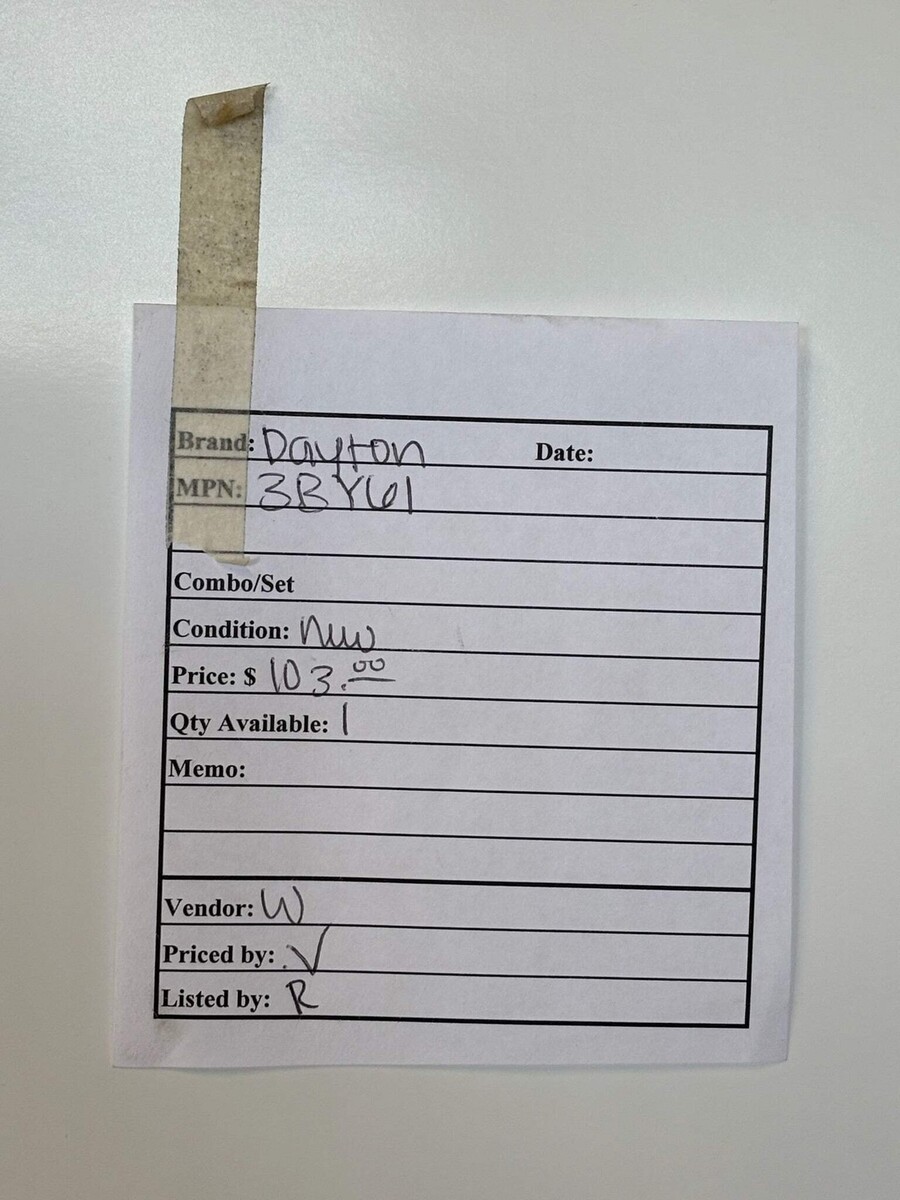 Brand: Dayton Date:
MPN: 3BY61
Combo/Set
Condition: New
Price: $ 103.00
Qty Available: 1
Memo:
Vendor: W
Priced by: V
Listed by: R